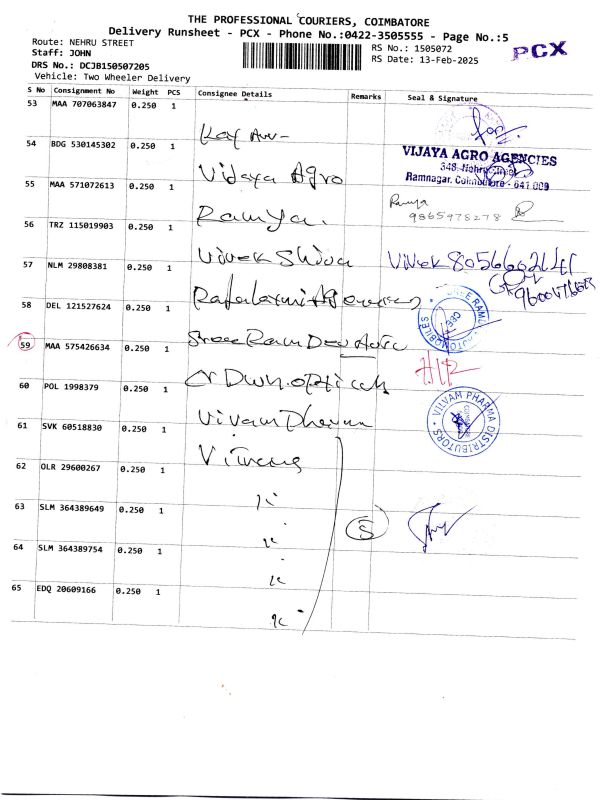 THE PROFESSIONAL COURIERS, COIMBATORE
Delivery Runsheet - PCX - Phone No.:0422-3505555 - Page No.:5
Route: NEHRU STREET
Staff: JOHN
DRS No.: DCJB150507205
Vehicle: Two Wheeler Delivery
RS No.: 1505072
RS Date: 13-Feb-2025
PCX
S No Consignment No Weight PCS Consignee Details Remarks Seal & Signature
53 MAA 707063847 0.250 1
54 BDG 530145302 0.250 1 Vidaya Agro
VIJAYA AGRO AGENCIES
348, Nehru Street
Ramnagar, Coimbatore - 641 009
55 MAA 571072613 0.250 1 Ramya. Ramya
9865978278
56 TRZ 115019903 0.250 1 Vivek Shiva Vivek
57 NLM 29808381 0.250 1
58 DEL 121527624 0.250 1 Sree Ram Dev Auto
59 MAA 575426634 0.250 1
60 POL 1998379 0.250 1
VILVAM PHARMA DISTRIBUTORS
61 SVK 60518830 0.250 1
62 OLR 29600267 0.250 1
63 SLM 364389649 0.250 1 5
64 SLM 364389754 0.250 1
65 EDQ 20609166 0.250 1